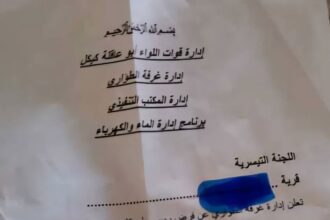 بسم الله الرحمن الرحيم
إدارة قوات اللواء أبو عاقلة كيكل
إدارة غرفة الطوارئ
إدارة المكتب التنفيذي
برنامج إدارة الماء والكهرباء
اللجنة التيسيرية
قرية ........................
تعلن إدارة غرفة الطوارئ عن